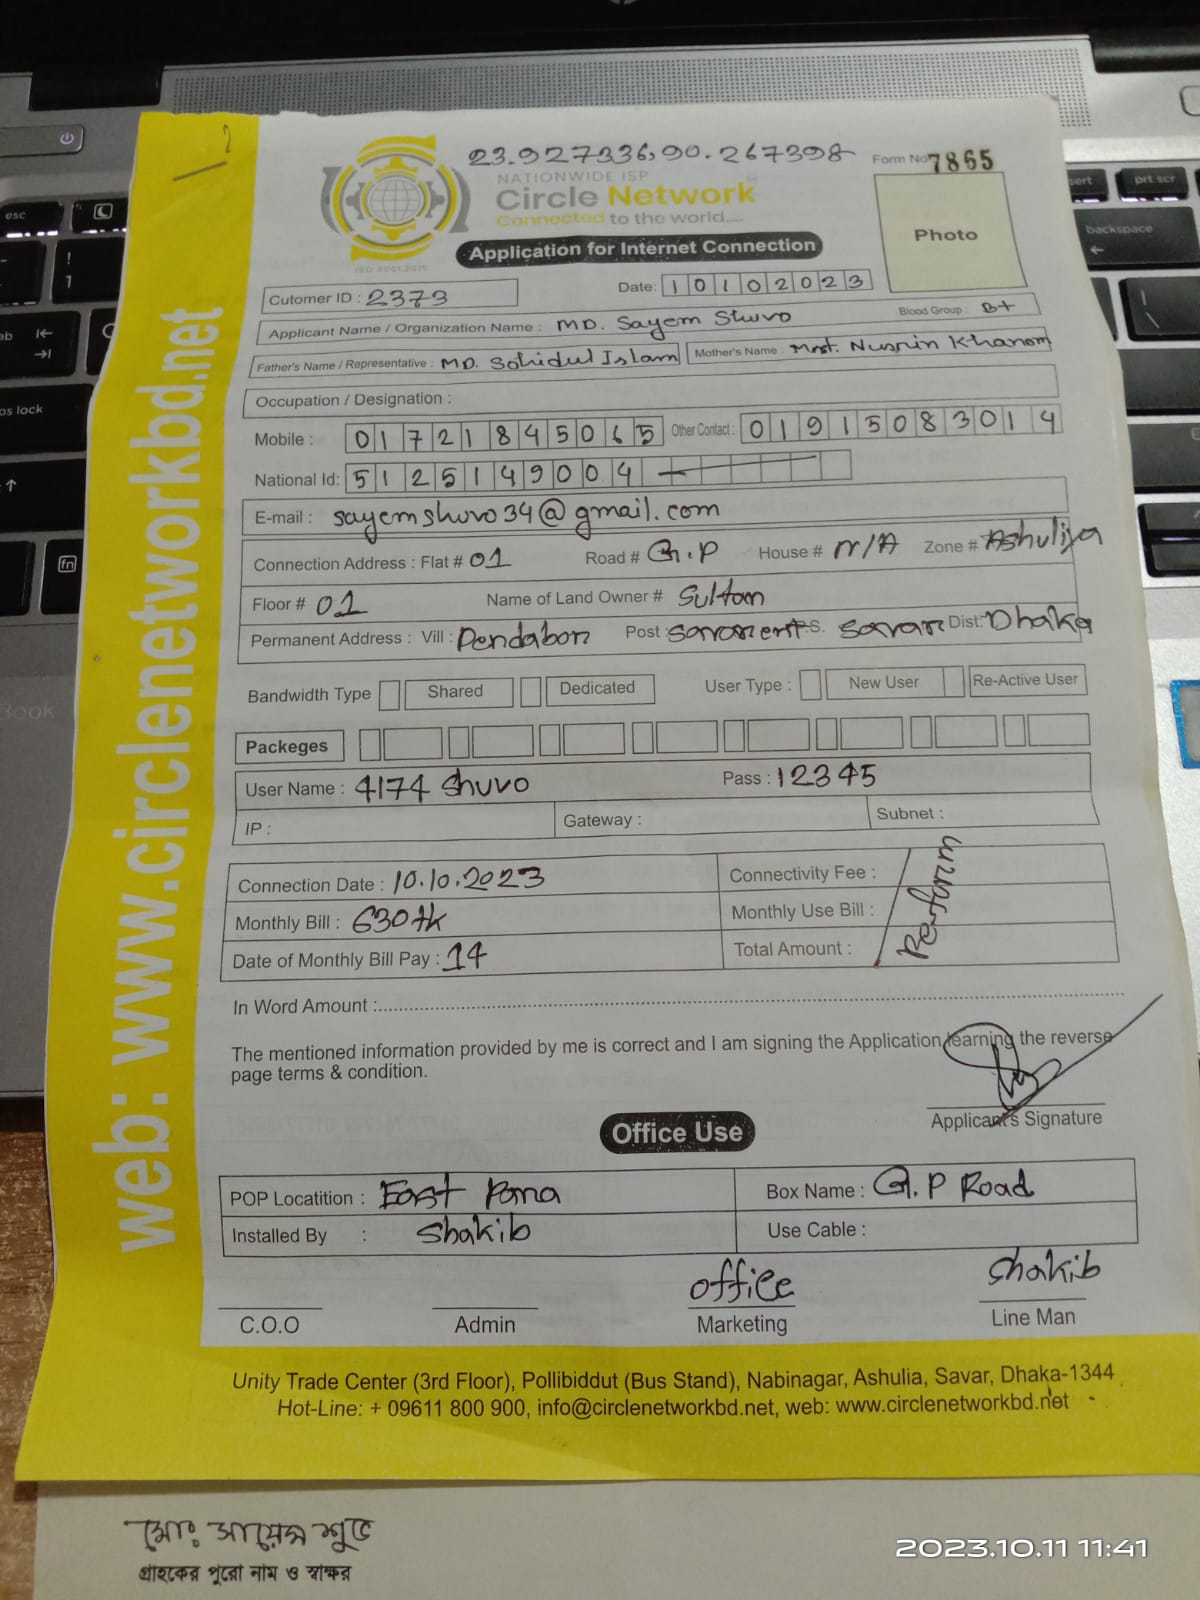 23.927336,90.267398
Form No 7865
NATIONWIDE ISP
Circle Network
Connected to the world....
ISO 9001:2015
Application for Internet Connection
Photo
Cutomer ID : 2373
Date: 10102023
Applicant Name / Organization Name : MD. Sayem Shuvo
Blood Group : B+
Father's Name / Representative : MD. Sohidul Islam
Mother's Name : Most. Nusrin Khanom
Occupation / Designation :
Mobile : 01721845065
Other Contact : 01915083014
National Id: 5125149004
E-mail : sayemshuvo34@gmail.com
Connection Address : Flat # 01 Road # G.P House # N/A Zone # Ashuliya
Floor # 01 Name of Land Owner # Sultan
Permanent Address : Vill : Dendabor Post : P.S. Savar Dist: Dhaka
Bandwidth Type Shared Dedicated User Type : New User Re-Active User
Packeges
User Name : 4174 Shuvo Pass : 12345
IP : Gateway : Subnet :
Connection Date : 10.10.2023 Connectivity Fee :
Monthly Bill : 630tk Monthly Use Bill :
Date of Monthly Bill Pay : 14 Total Amount :
In Word Amount :
The mentioned information provided by me is correct and I am signing the Application learning the reverse
page terms & condition.
Applicant's Signature
Office Use
POP Locatition : East Box Name : G.P Road
Installed By : Shakib Use Cable :
office Shakib
C.O.O Admin Marketing Line Man
Unity Trade Center (3rd Floor), Pollibiddut (Bus Stand), Nabinagar, Ashulia, Savar, Dhaka-1344
Hot-Line: + 09611 800 900, info@circlenetworkbd.net, web: www.circlenetworkbd.net
web: www.circlenetworkbd.net
মোঃ সায়েম শুভ
গ্রাহকের পুরো নাম ও স্বাক্ষর
2023.10.11 11:41